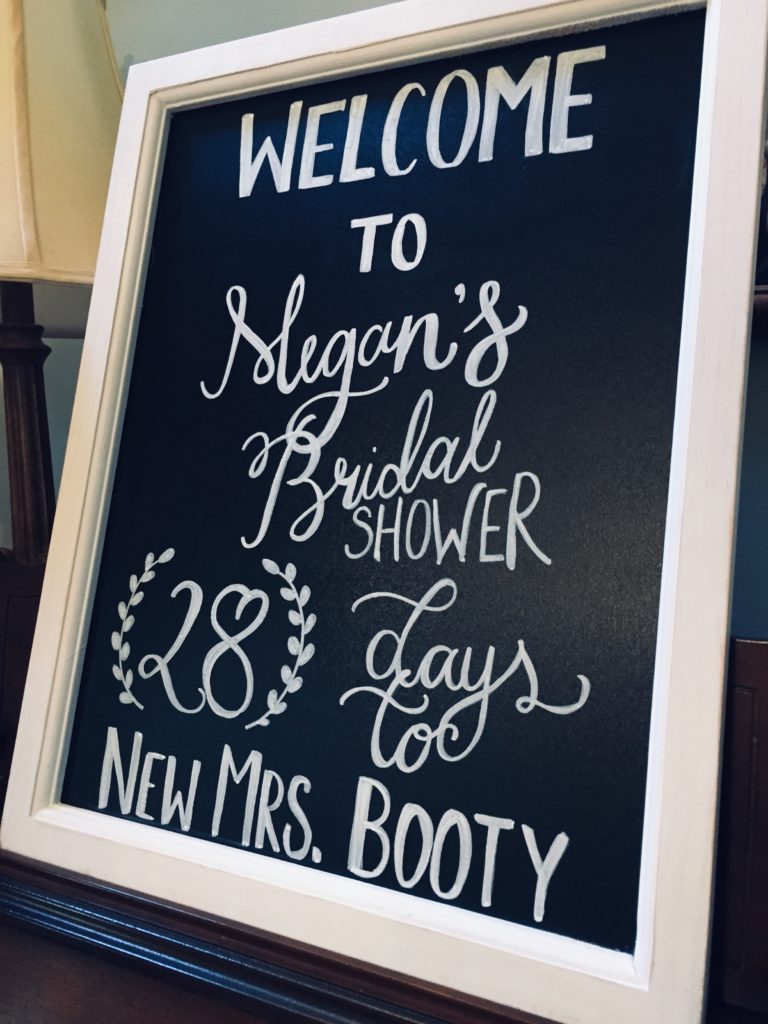 WELCOME
TO
Megan's
Bridal
SHOWER
28 days
to
NEW MRS. BOOTY